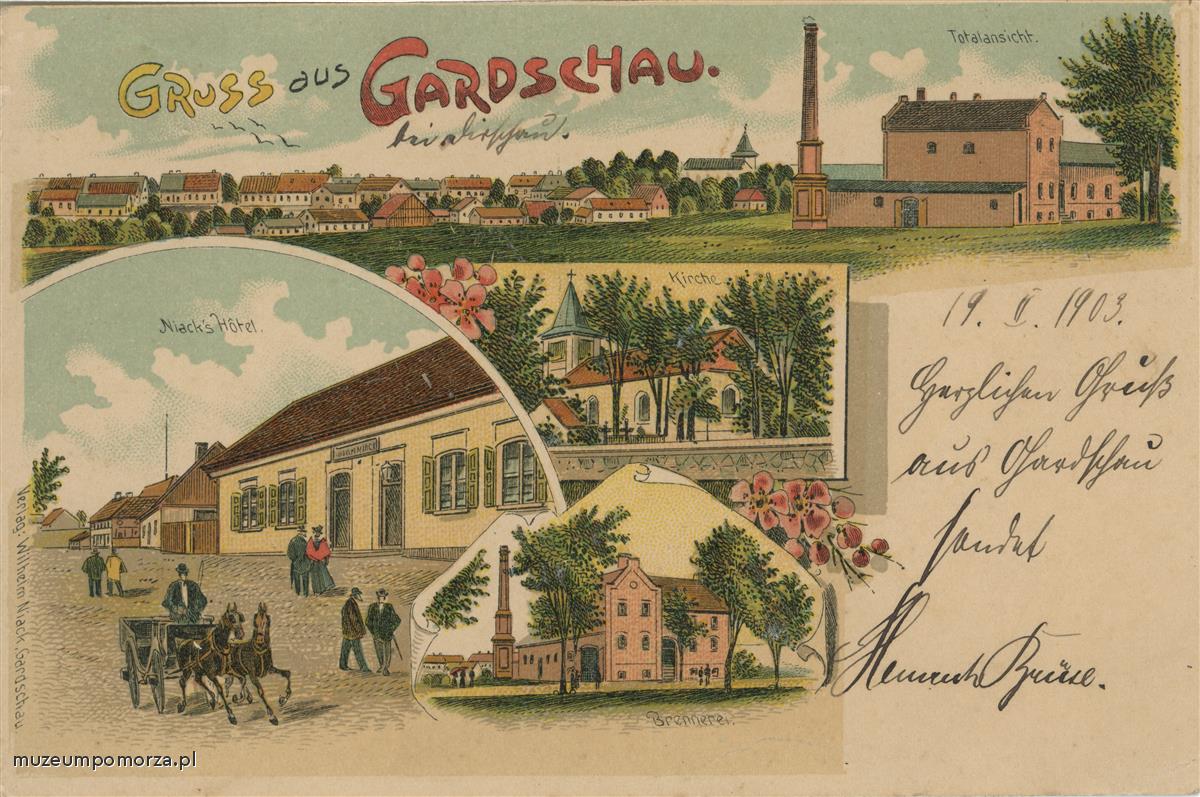 GRUSS aus GARDSCHAU.
bei Dirschau.
Totalansicht.
Niack's Hôtel.
Kirche
19. II. 1903.
Herzlichen Gruß
aus Gardschau
sendet
Brennerei.
Verlag: Wilhelm Niack, Gardschau.
muzeumpomorza.pl